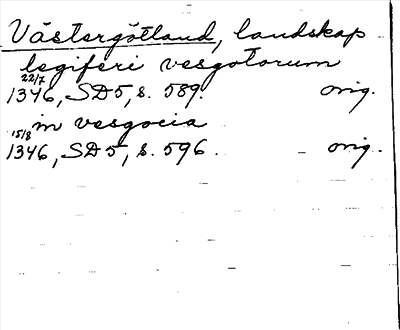 Västergötland, landskap
legiferi vesgotorum
22/7 1346, SD5, s. 589. orig.
in vesgocia
15/8 1346, SD5, s. 596. orig.